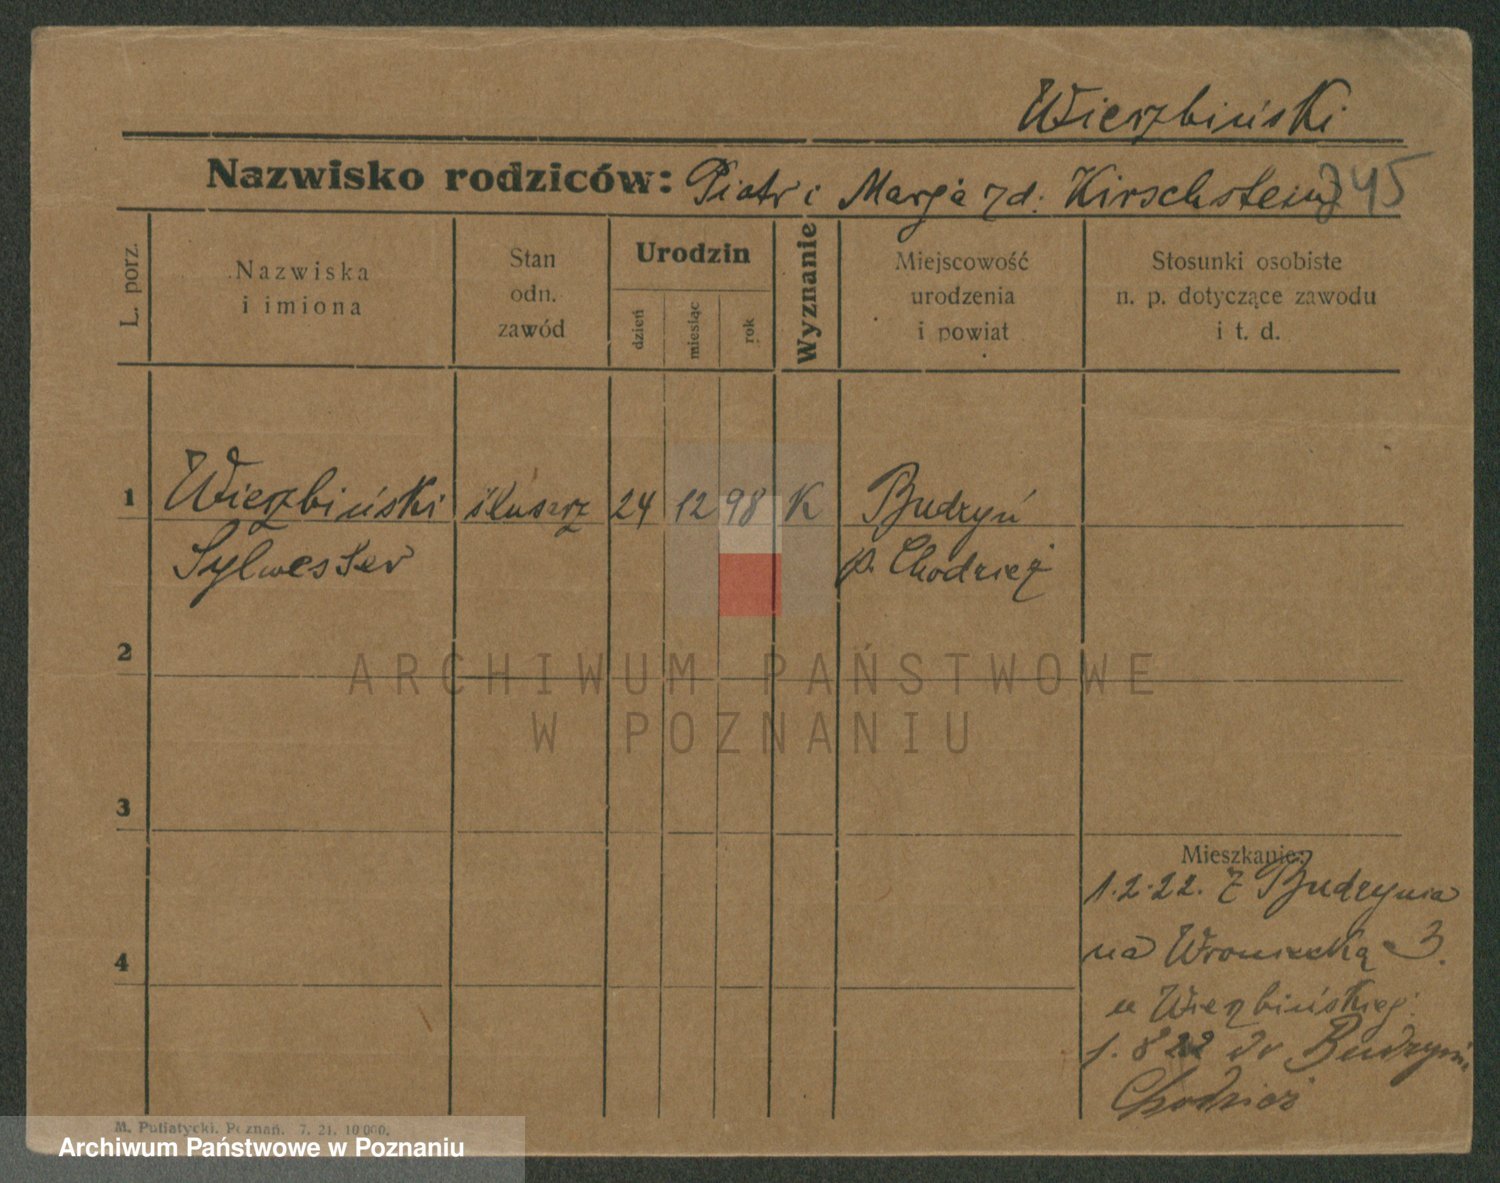 Wierzbiński
Nazwisko rodziców: Piotr i Marja zd. Kirschstein
745
L. porz.
Nazwiska
i imiona
Stan
odn.
zawód
Urodzin
dzień
miesiąc
rok
Wyznanie
Miejscowość
urodzenia
i powiat
Stosunki osobiste
n. p. dotyczące zawodu
i t. d.
1 Wierzbiński ślusarz 24 12 98 K Budzyń
Sylwester p. Chodzież
2
ARCHIWUM PAŃSTWOWE
W POZNANIU
3
Mieszkanie:
1.2.22. z Budzynia
na Wroniecką 3.
4
u Wierzbińskieg.
1. 8 22 do Budzynia
Chodzież
M. Putiatycki. Poznań. 7. 21. 10000.
Archiwum Państwowe w Poznaniu